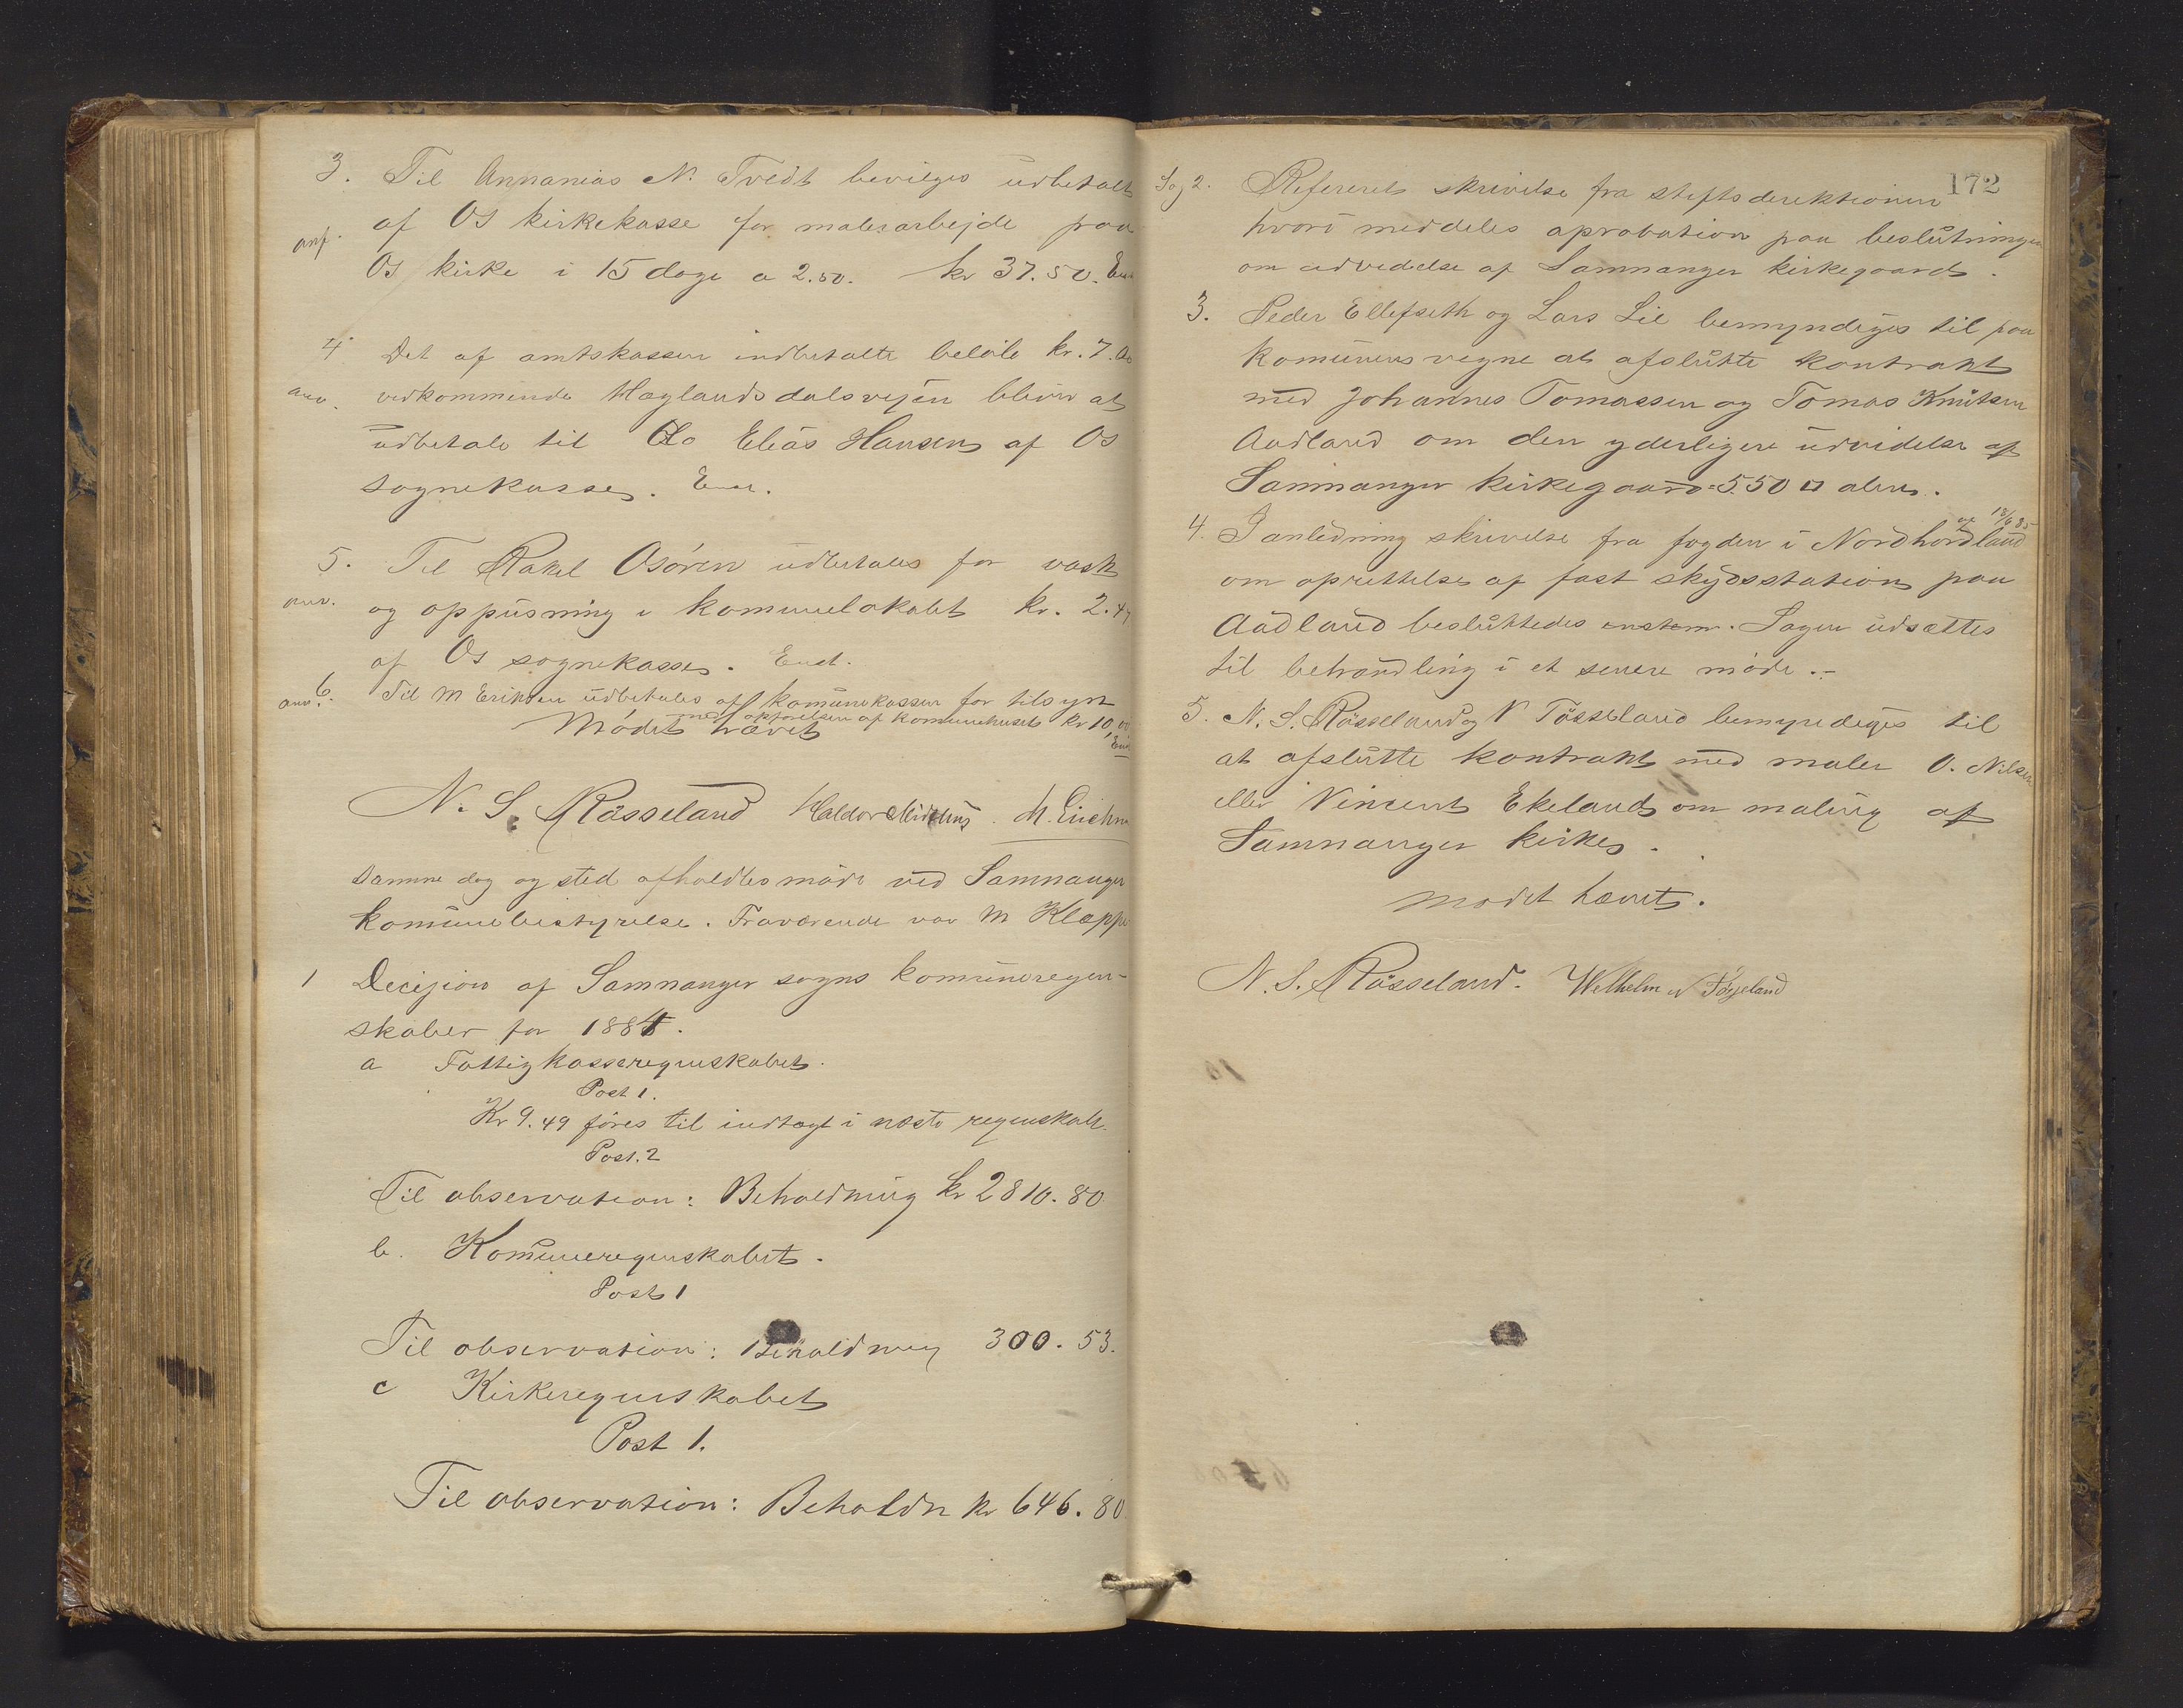 3. Til Annanias N. Tvedt bevilges udbetalt
af Os kirkekasse for malerarbejde paa
anf.
Os kirke i 15 dage a 2.50. kr 37.50. Enst
4 Det af amtskassen indbetalte beløb kr. 7.
anv. vedkommende Hæglandsdalsvejen bliver at
udbetale til Elias Hansen af Os
sognekasse. Enst.
5. Til Rakel Osøren udbetales for vask
anv. og oppusning i kommunelokalet kr. 2.
af Os sognekasse. Enst.
6. Til M Eriksen udbetales af komunekassen for tilsyn
anv. med opførelsen af komunehuset kr 10,00
Mødet hævet Enst
N. S. Røsseland Haldor M. Erichsen
Samme dag og sted afholdtes møde ved Samnanger
komunebestyrelse. Fraværende var M Kleppe
1 Decision af Samnanger sogns komuneregen-
skaber for 1884.
a Fattigkasseregnskabet.
Post 1.
Kr 9.49 føres til indtægt i næste regnskab.
Post. 2
Til observation: Beholdning kr 2810.80
b. Komuneregnskabet.
Post 1
Til observation: Beholdning 300.53.
c Kirkeregnskabet
Post 1.
Til observation: Beholdn kr 646.80
172
Sag 2. Refereret skrivelse fra stiftsdirektionen
hvori meddeles aprobation paa beslutningen
om udvidelse af Samnanger kirkegaard.
3. Peder Ellefseth og Lars Lie bemyndiges til paa
komunens vegne at afslutte kontrakt
med Johannes Tomassen og Tomas Knutsen
Aadland om den yderligere udvidelse af
Samnanger kirkegaard = 550 □ alen.
4. I anledning skrivelse fra fogden i Nordhordland af 18/6 85
om oprettelse af fast skydsstation paa
Aadland besluttedes enstem. Sagen udsættes
til behandling i et senere møde.-
5. N. S. Røsseland og V Tøsseland bemyndiges til
at afslutte kontrakt med maler O. Nilsen
eller Vincent Ekeland om maling af
Samnanger kirke.
Mødet hævet.
N. S. Røsseland. Wilhelm Tøsseland